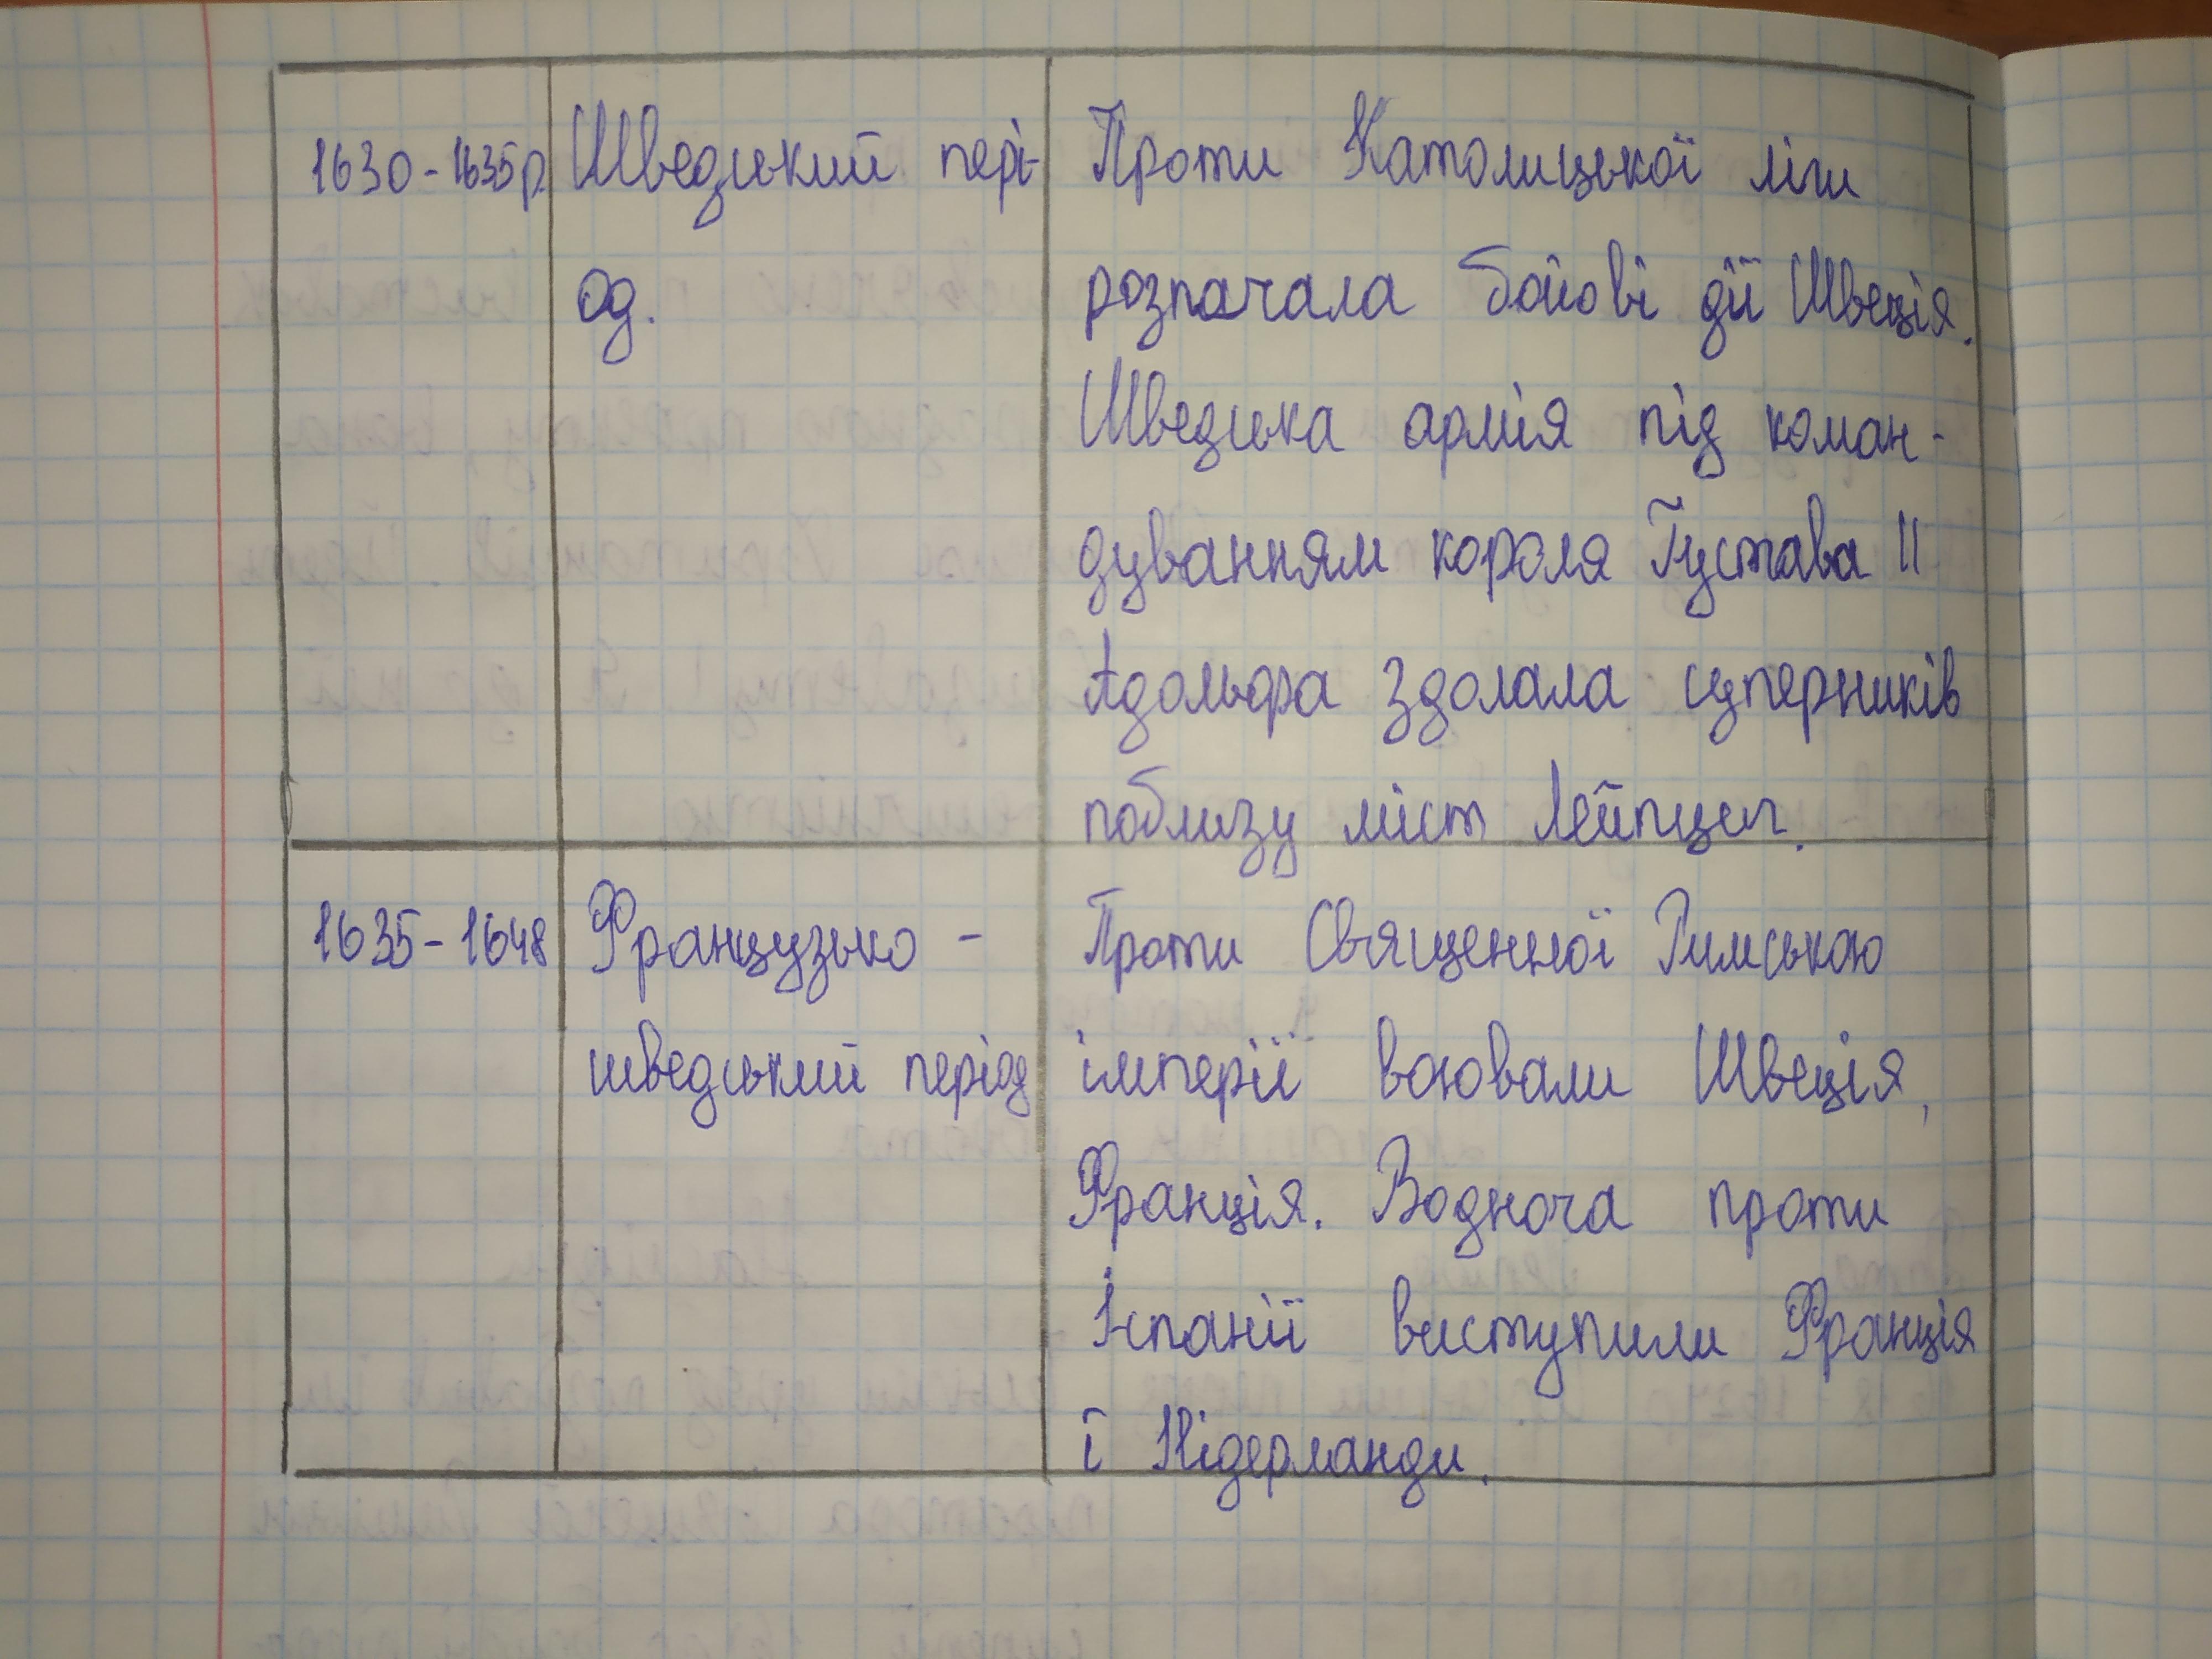 1630-1635р. Шведський пері-
од.
Проти Католицької ліги
розпочала бойові дії Швеція.
Шведська армія під коман-
дуванням короля Густава II
Адольфа здолала суперників
поблизу міст Лейпциг.
1635-1648 Французько-
шведський період
Проти Священної Римською
імперії воювали Швеція,
Франція. Водноча проти
Іспанії виступили Франція
і Нідерланди.